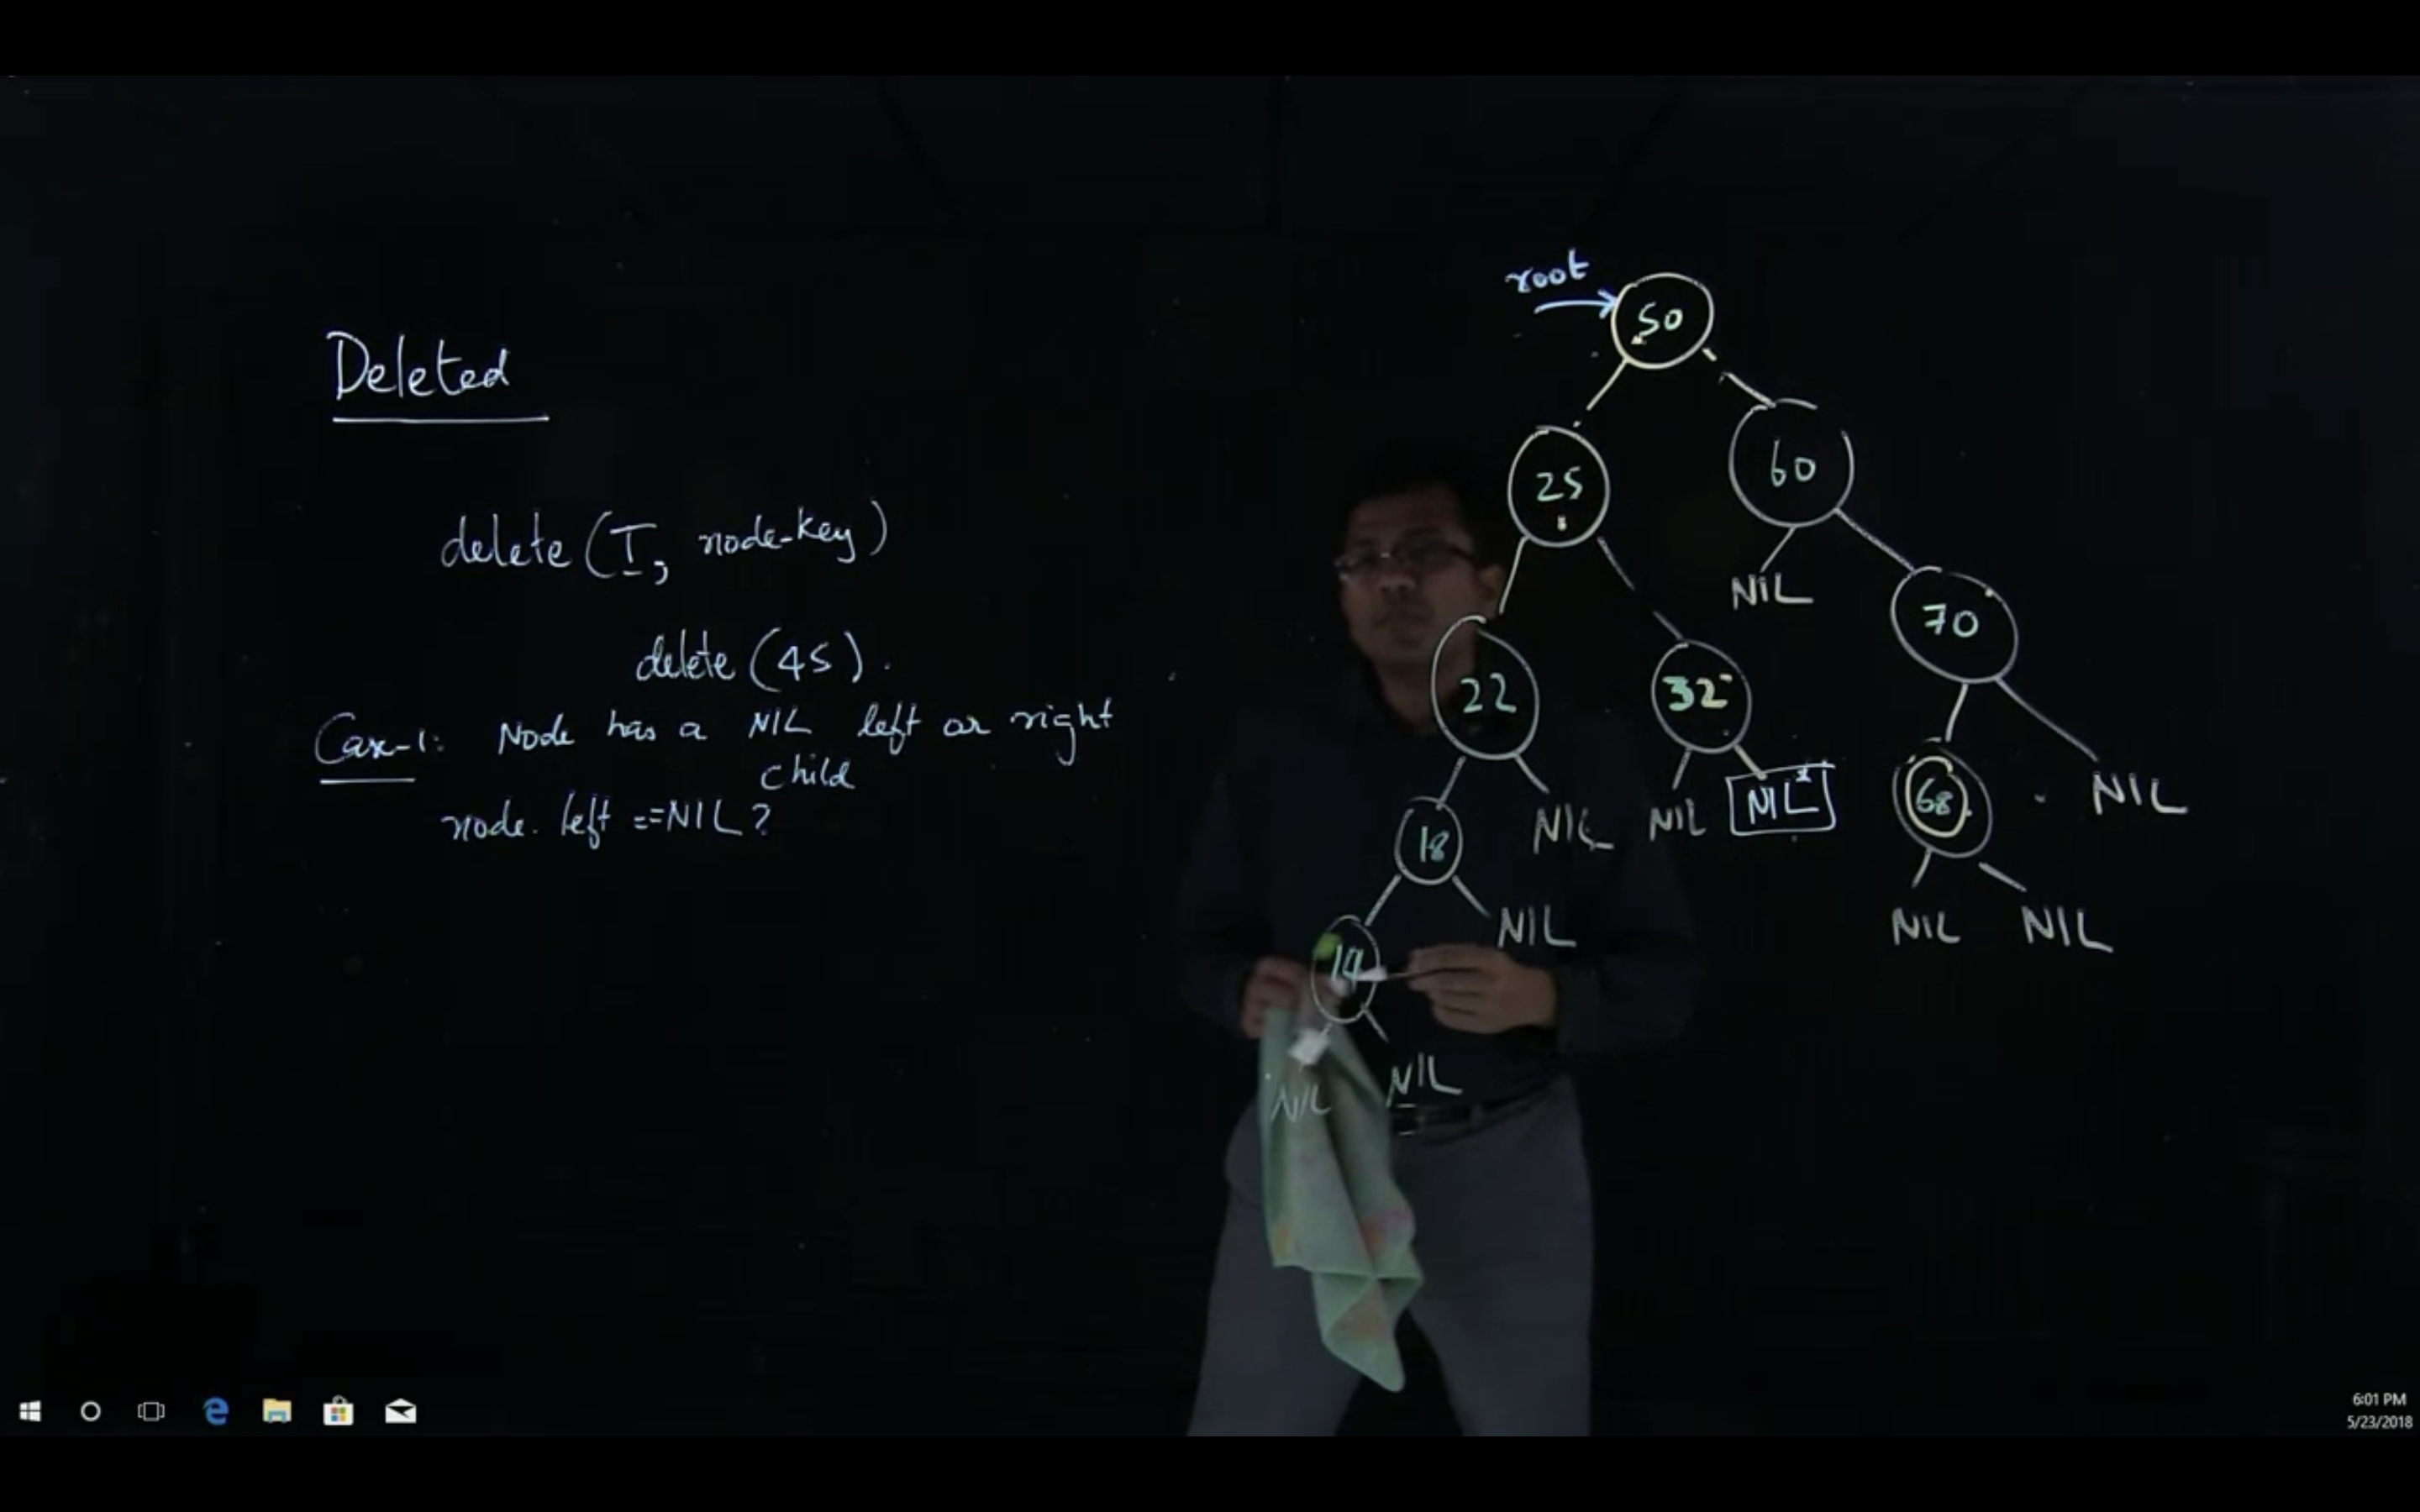 Deleted
delete (T, node-key)
delete (45).
Case-1: Node has a NIL left or right
child
node. left ==NIL?
root
50
25
60
NIL
70
22
32
NIL
NIL
NIL
68
NIL
18
NIL
NIL
NIL
NIL
NIL
6:01 PM
5/23/2018